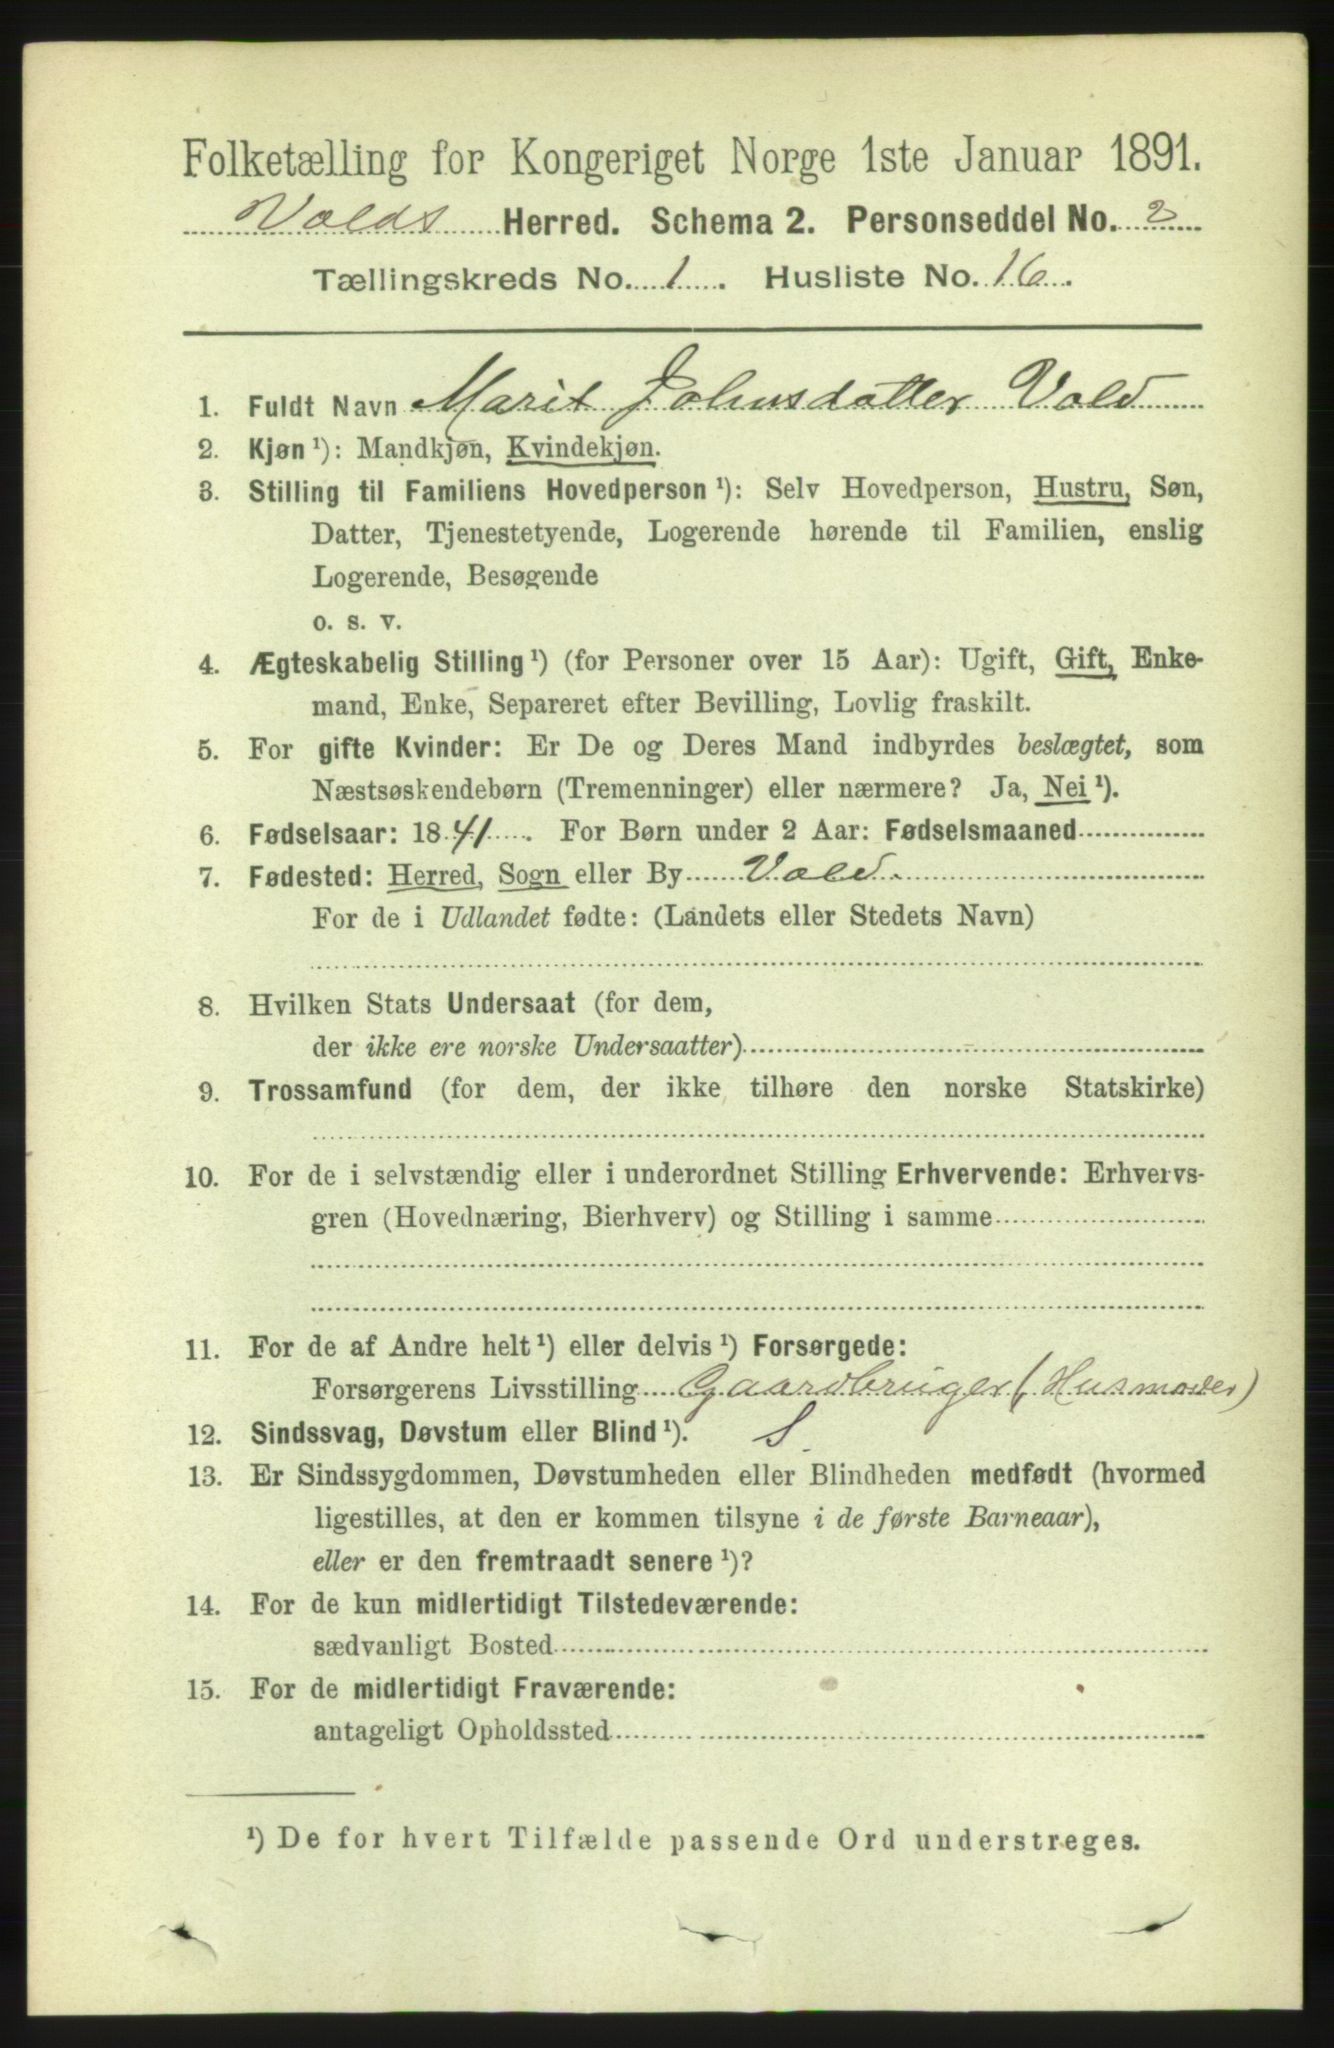 Folketælling for Kongeriget Norge 1ste Januar 1891.
Volds Herred. Schema 2. Personseddel No. 2
Tællingskreds No. 1. Husliste No. 16.
1. Fuldt Navn Marit Johnsdatter Vold
2. Kjøn ¹): Mandkjøn, Kvindekjøn.
3. Stilling til Familiens Hovedperson ¹): Selv Hovedperson, Hustru, Søn,
Datter, Tjenestetyende, Logerende hørende til Familien, enslig
Logerende, Besøgende
o. s. v.
4. Ægteskabelig Stilling ¹) (for Personer over 15 Aar): Ugift, Gift, Enke-
mand, Enke, Separeret efter Bevilling, Lovlig fraskilt.
5. For gifte Kvinder: Er De og Deres Mand indbyrdes beslægtet, som
Næstsøskendebørn (Tremenninger) eller nærmere? Ja, Nei ¹).
6. Fødselsaar: 1841. For Børn under 2 Aar: Fødselsmaaned
7. Fødested: Herred, Sogn eller By Vold.
For de i Udlandet fødte: (Landets eller Stedets Navn)
8. Hvilken Stats Undersaat (for dem,
der ikke ere norske Undersaatter)
9. Trossamfund (for dem, der ikke tilhøre den norske Statskirke)
10. For de i selvstændig eller i underordnet Stilling Erhvervende: Erhvervs-
gren (Hovednæring, Bierhverv) og Stilling i samme
11. For de af Andre helt ¹) eller delvis ¹) Forsørgede:
Forsørgerens Livsstilling Gaardbruger (Husmoder)
12. Sindssvag, Døvstum eller Blind ¹). S.
13. Er Sindssygdommen, Døvstumheden eller Blindheden medfødt (hvormed
ligestilles, at den er kommen tilsyne i de første Barneaar),
eller er den fremtraadt senere ¹)?
14. For de kun midlertidigt Tilstedeværende:
sædvanligt Bosted
15. For de midlertidigt Fraværende:
antageligt Opholdssted
¹) De for hvert Tilfælde passende Ord understreges.